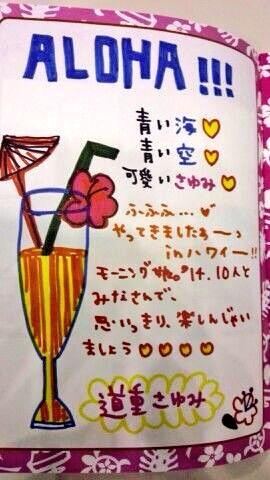 ALOHA!!!
青い海
青い空
可愛いさゆみ
ふふふ…
やってきましたぁーっ
inハワイー!!
モーニング娘。'14、10人と
みなさんで、
思いっきり、楽しんじゃい
ましょう
道重さゆみ